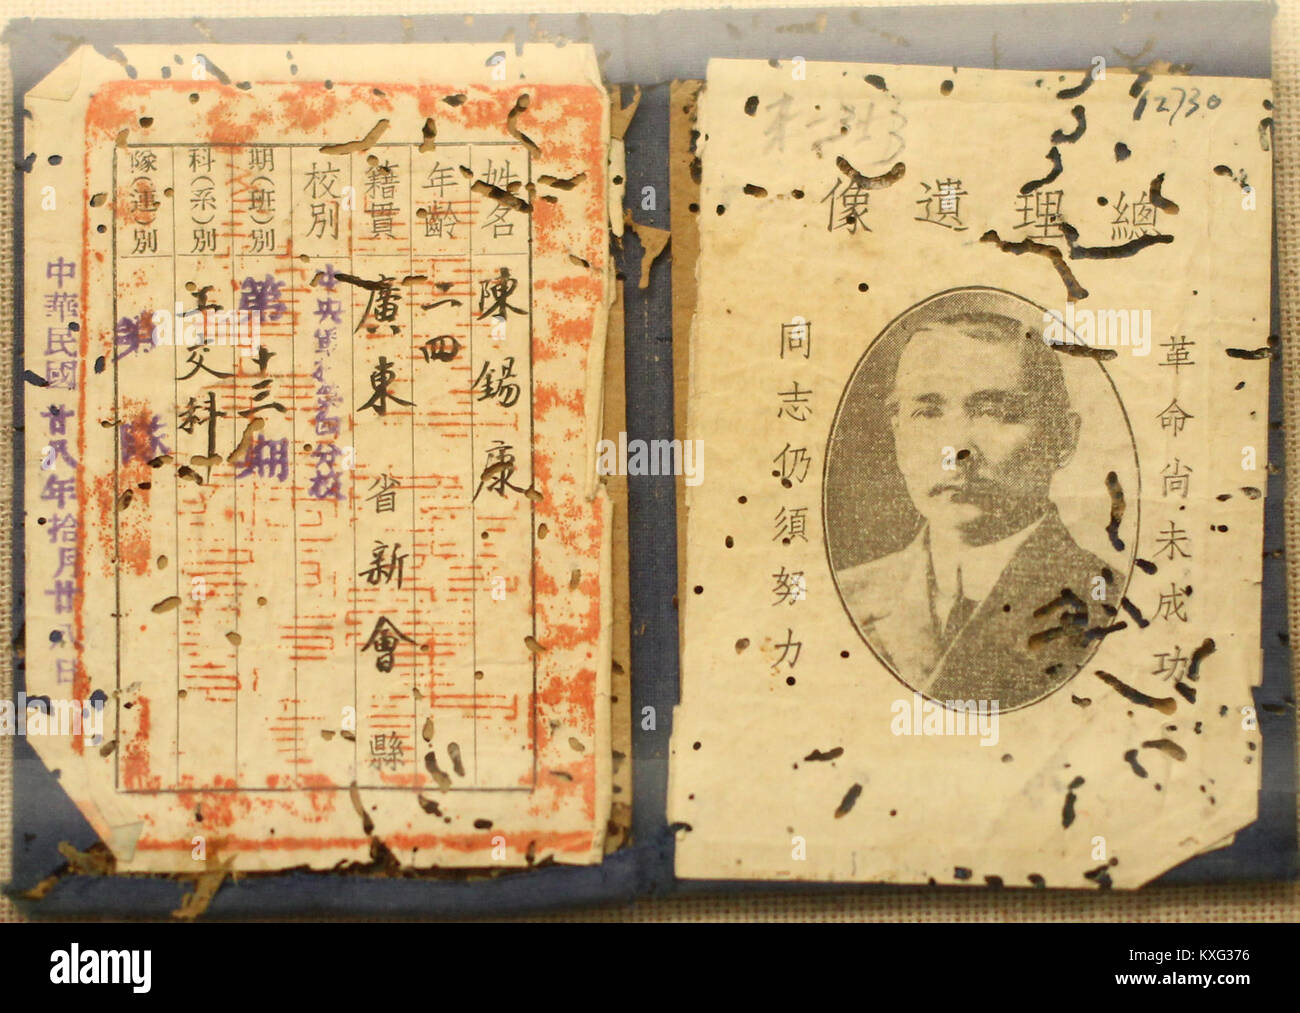 12730
總理遺像
革命尚未成功
同志仍須努力
姓名 陳錫康
年齡 二四
籍貫 廣東省新會縣
校別 中央軍校第四分校
期(班)別 第十三期
科(系)別 工交科
隊(連)別 第 隊
中華民國廿八年拾月廿八日
alamy
Image ID: KXG376
www.alamy.com